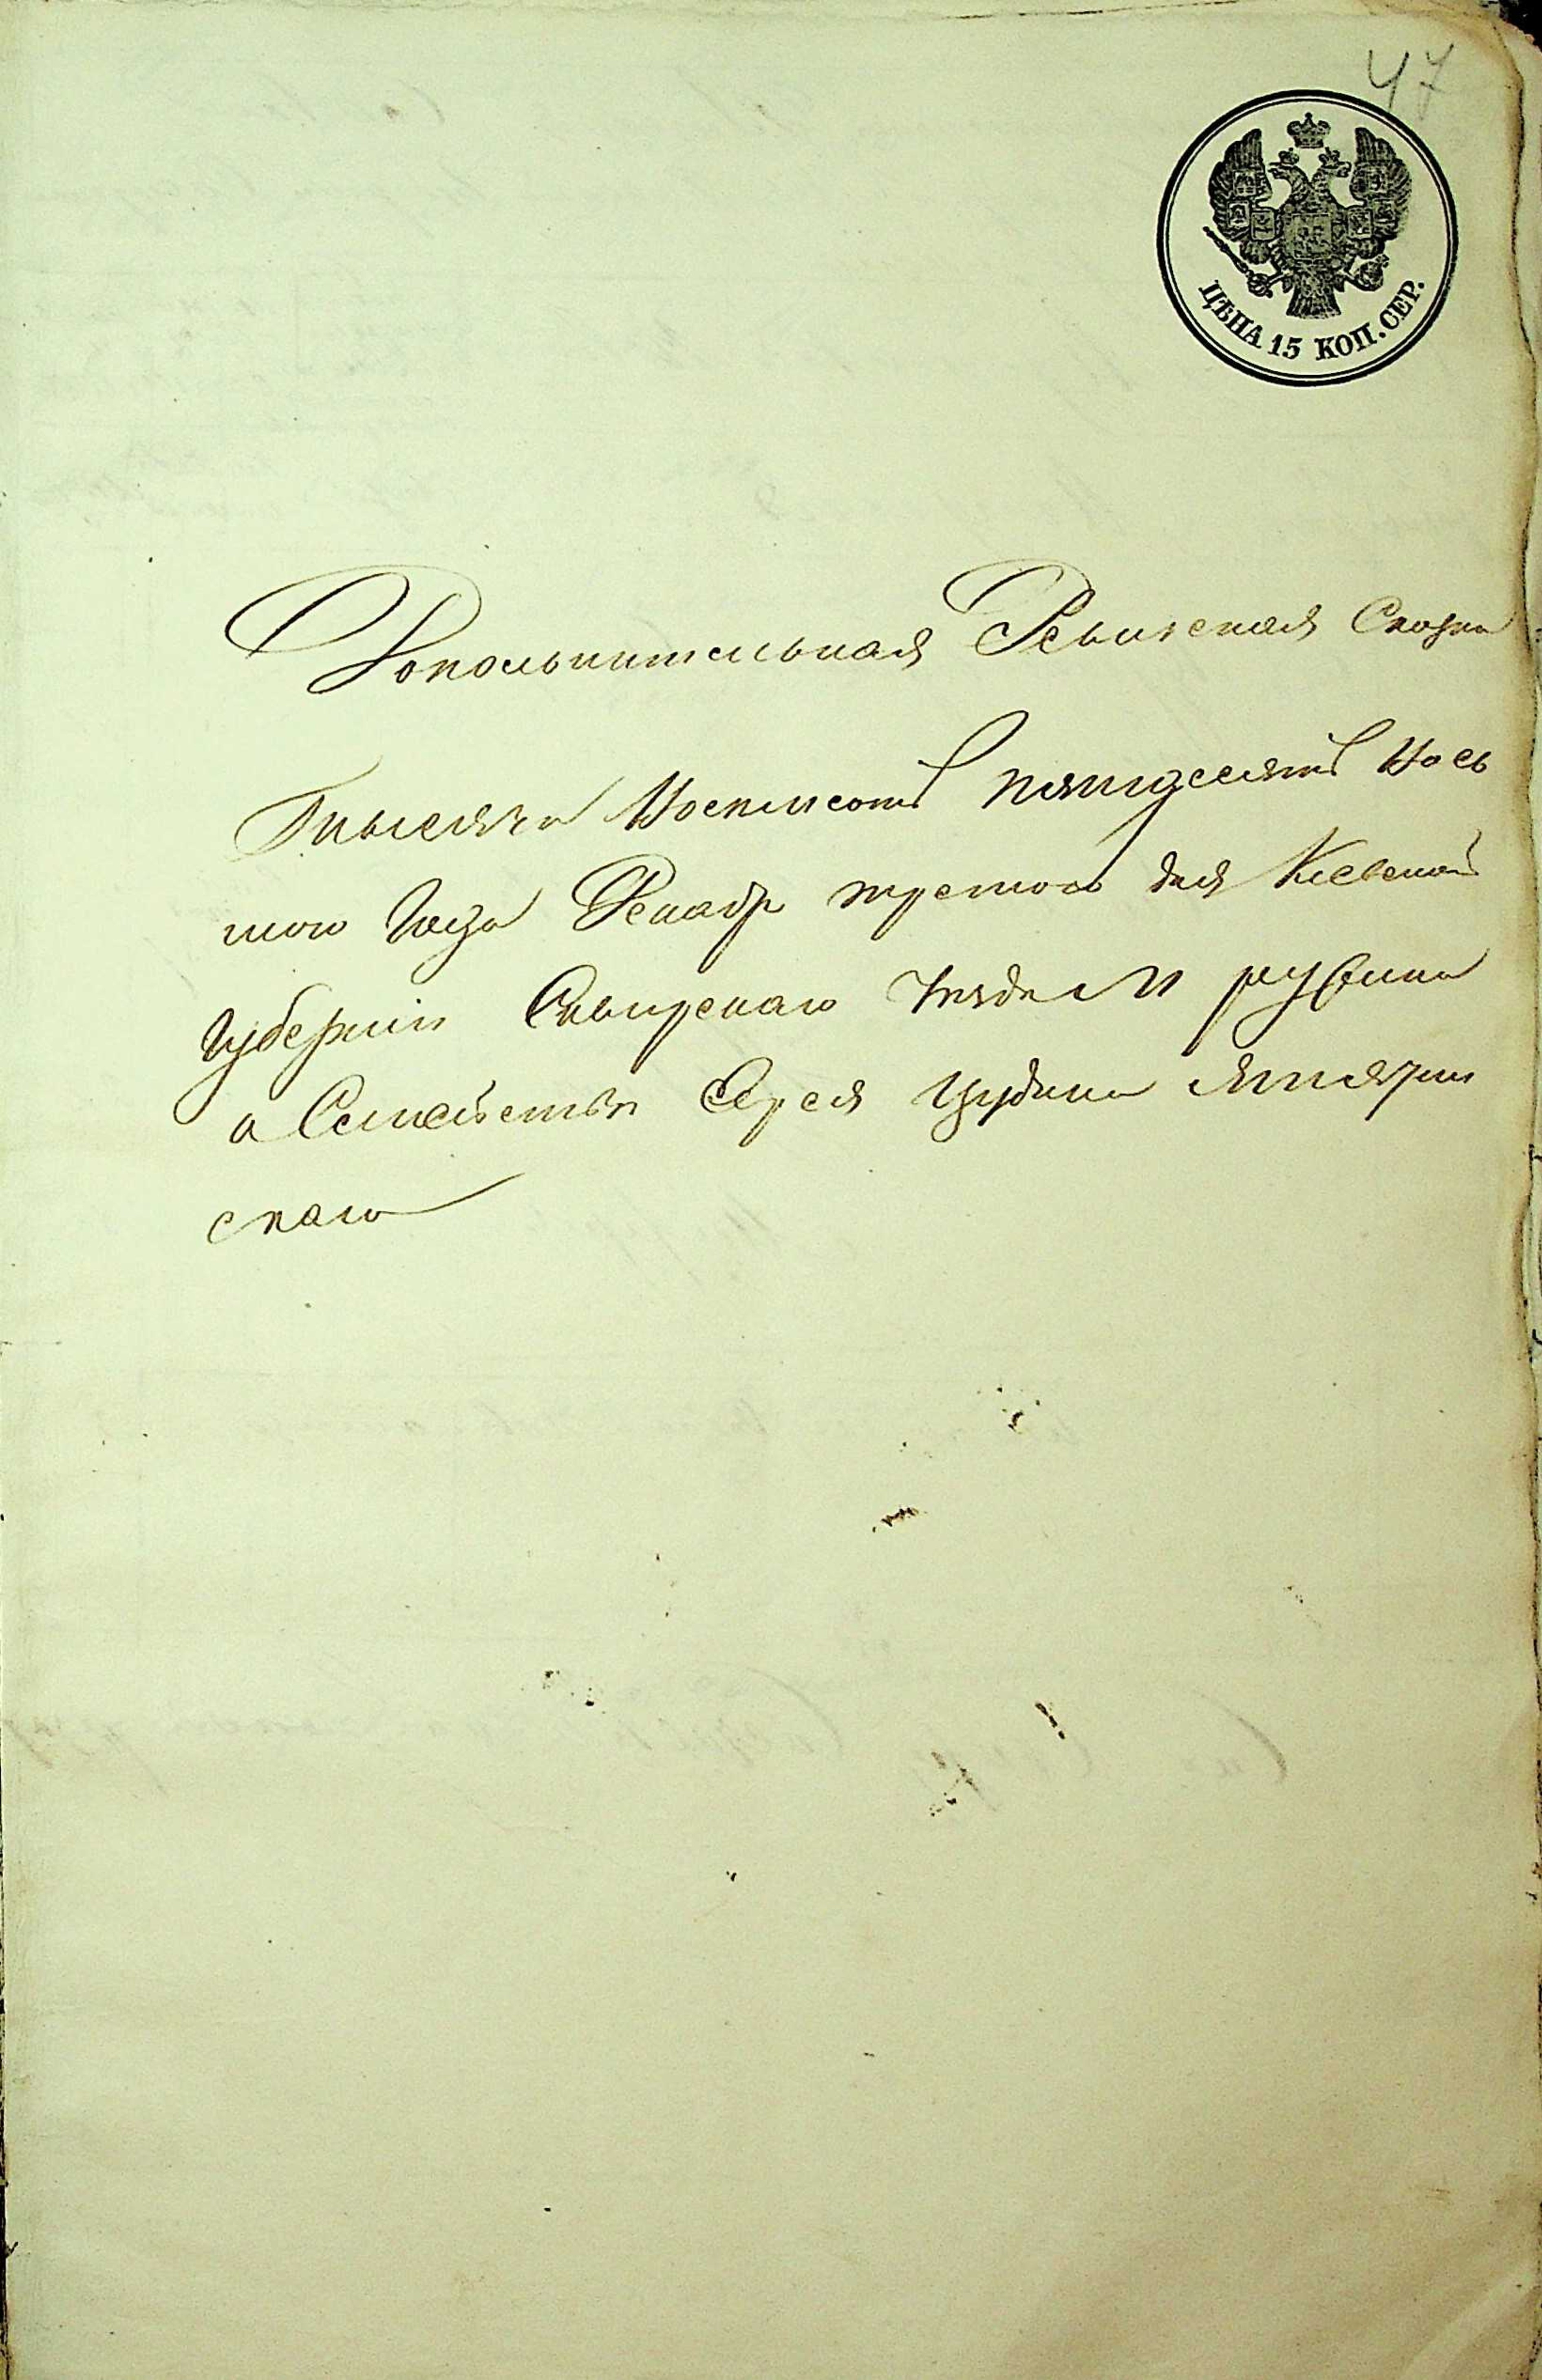 47
ЦѢНА 15 КОП. СЕР.
Дополнительная Ревизская Сказка
Тысяча Восемсотъ пятдесятъ Вось
мого Года Декабр третого дня Киевской
Губернии Сквирскаго Уезда М ружина
о Семействе
скаго